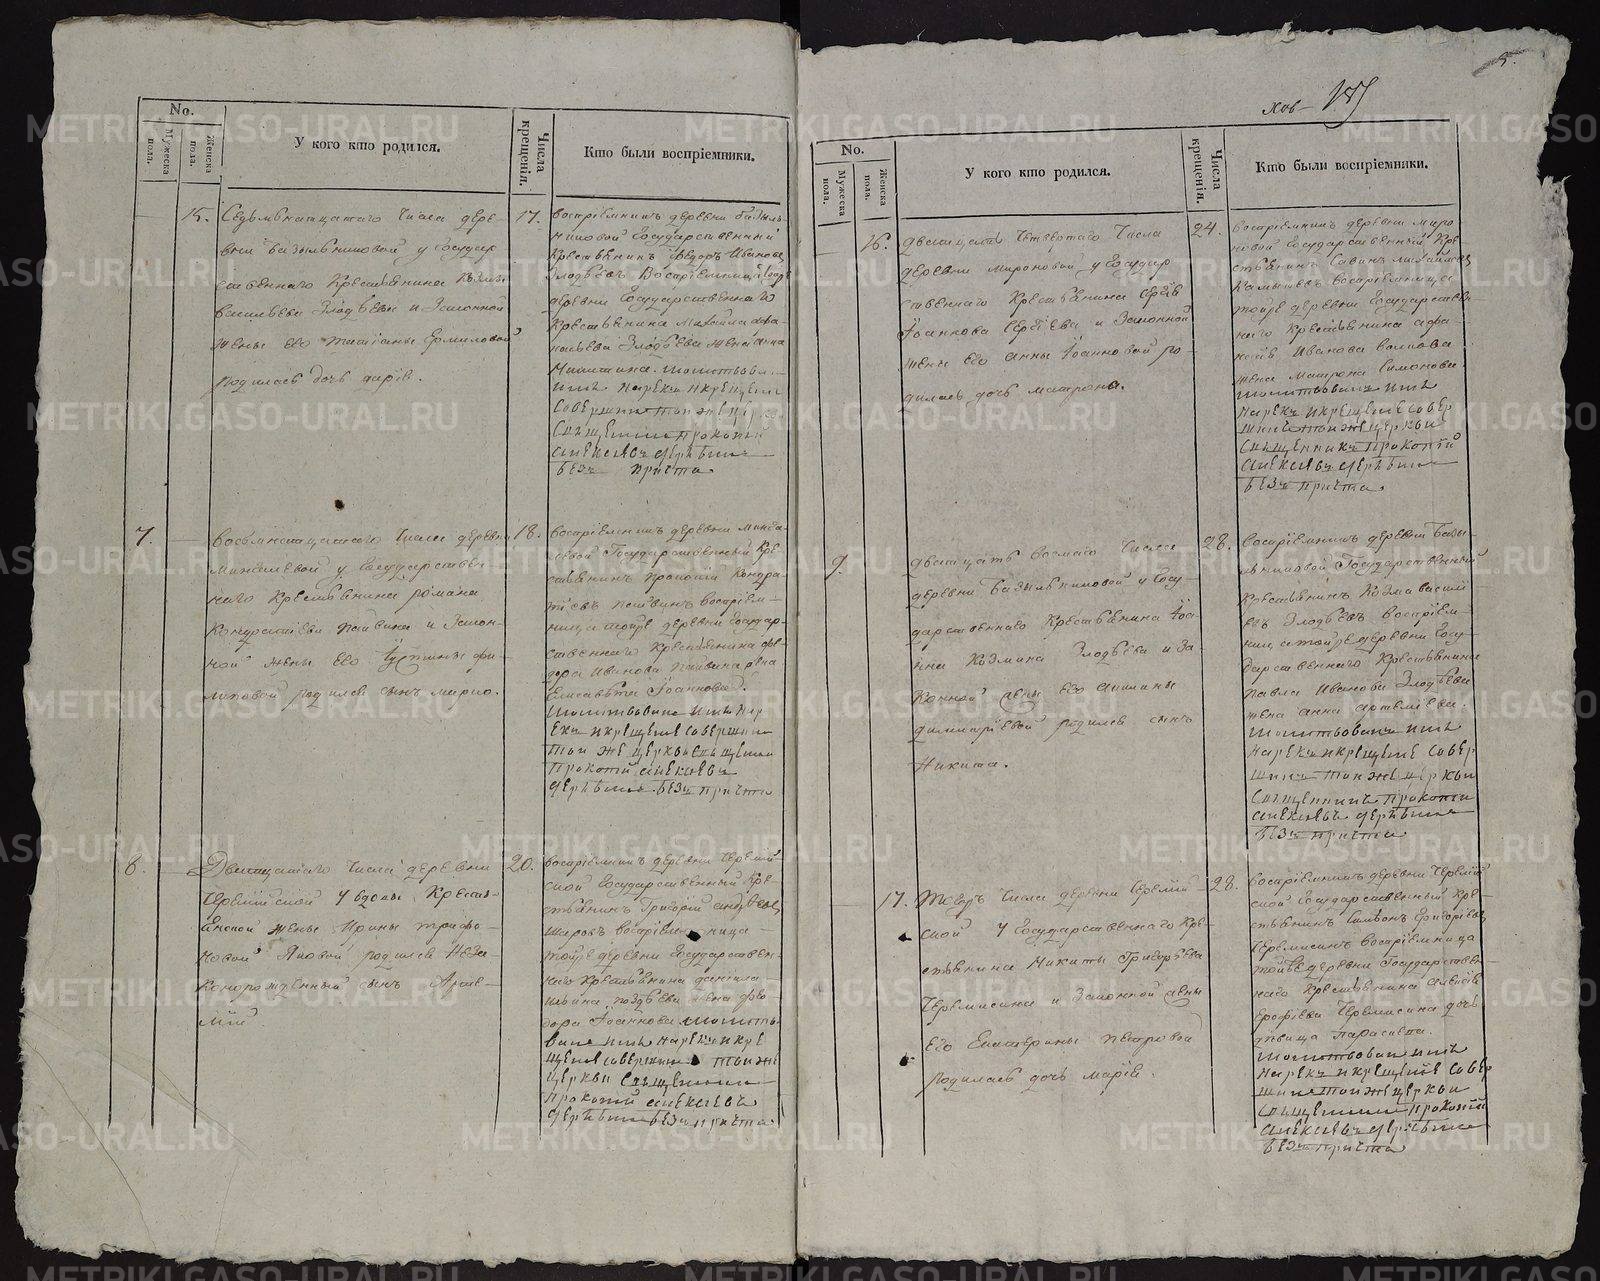 No.
Мужеска пола.
Женска пола.
У кого кто родился.
Числа крещенія.
Кто были воспріемники.
15.
Седьмнатцатаго числа дере-
вни Базыльниковой у Государ
ственнаго Крестьянина Козмы
Васильева Злодѣева и Законной
жены его Татіаны Ермиловой
родилась дочь Дарія.
17.
воспріемникъ деревни Базыль-
никовой Государственный
Крестьянинъ Ѳедоръ Ивановъ
Злодѣевъ Воспріемница
деревни Государственнаго
Крестьянина Михаила Афа-
насьева Злодѣева жена Анна
Никитина. молитвова
имя нарекъ и крещеніе
совершилъ той же церкви
Священникъ Прокопій
Алексѣевъ Дерябинъ
безъ причта
7.
восьмнатцатаго числа деревни
Мингалевой у Государствен
наго Крестьянина Романа
Кондратіева Пайвина и Закон-
ной жены его Іустины Фи-
липовой родился сынъ Миронъ.
18.
воспріемникъ деревни Минга-
левой Государственный Кре-
стьянинъ Прокопій Кондра-
тіевъ Пайвинъ воспріем-
ница тойже деревни Государ-
ственнаго Крестьянина Фе-
дора Иванова Пайвина жена
Елисавета Іоаннова.
молитвовалъ имя нар
екъ и крещеніе совершилъ
той же церкви священникъ
Прокопій Алексѣевъ
Дерябинъ. безъ причта
8.
Двадцатаго числа деревни
Черемисской у вдовы, Кресть-
янской жены Ирины Трифо-
новой родился Неза-
коннорожденный сынъ
20.
воспріемникъ деревни Черемис-
ской Государственный Кре-
стьянинъ Григорій Андреевъ
воспріемница
тойже деревни Государствен-
наго Крестьянина Данила
жена Фео-
дора Іоаннова молитво
валъ имя нарекъ и кре
щеніе совершилъ той же
церкви Священникъ
Прокопій Алексѣевъ
Дерябинъ безъ причта
5.
No.
Мужеска пола.
Женска пола.
У кого кто родился.
Числа крещенія.
Кто были воспріемники.
16.
двадцать четвертаго числа
деревни Мироновой у Государ
ственнаго Крестьянина Сергія
Іоаннова Сергѣева и Законной
жены его Анны Іоанновой ро-
дилась дочь Матрона.
24.
воспріемникъ деревни Миро-
новой Государственный Кре
стьянинъ Савинъ Михайловъ
воспріемница
тойже деревни Государствен
наго Крестьянина Афа-
насія Иванова
жена Матрона Симонова.
молитвовалъ имя
нарекъ и крещеніе совер
шилъ той же церкви
Священникъ Прокопій
Алексѣевъ Дерябинъ
безъ причта.
9.
двадцать восмаго числа
деревни Базыльниковой у Госу-
дарственнаго Крестьянина Іоа-
нна Козмина Злодѣева и За-
конной жены его Акилины
Димитріевой родился сынъ
Никита.
28.
воспріемникъ деревни Базы-
льниковой Государственный
Крестьянинъ Козма Василі
евъ Злодѣевъ воспріем-
ница тойже деревни Госу-
дарственнаго Крестьянина
Павла Иванова Злодѣева
жена Анна Артеміева.
молитвовалъ имя
нарекъ и крещеніе совер
шилъ той же церкви
Священникъ Прокопій
Алексѣевъ Дерябинъ
безъ причта
17.
Тогожъ числа деревни Черемис
ской у Государственнаго Кре-
стьянина Никиты Григорьева
Черемисина и Законной жены
его Екатерины Петровой
родилась дочь Марія.
28.
воспріемникъ деревни Черемис
ской Государственный Кре-
стьянинъ Симеонъ Григорьевъ
Черемисинъ воспріемница
тойже деревни Государствен-
наго Крестьянина Алексія
Ерофѣева Черемисина дочь
дѣвица Параскева.
молитвовалъ имя
нарекъ и крещеніе совер
шилъ той же церкви
Священникъ Прокопій
Алексѣевъ Дерябинъ
безъ причта